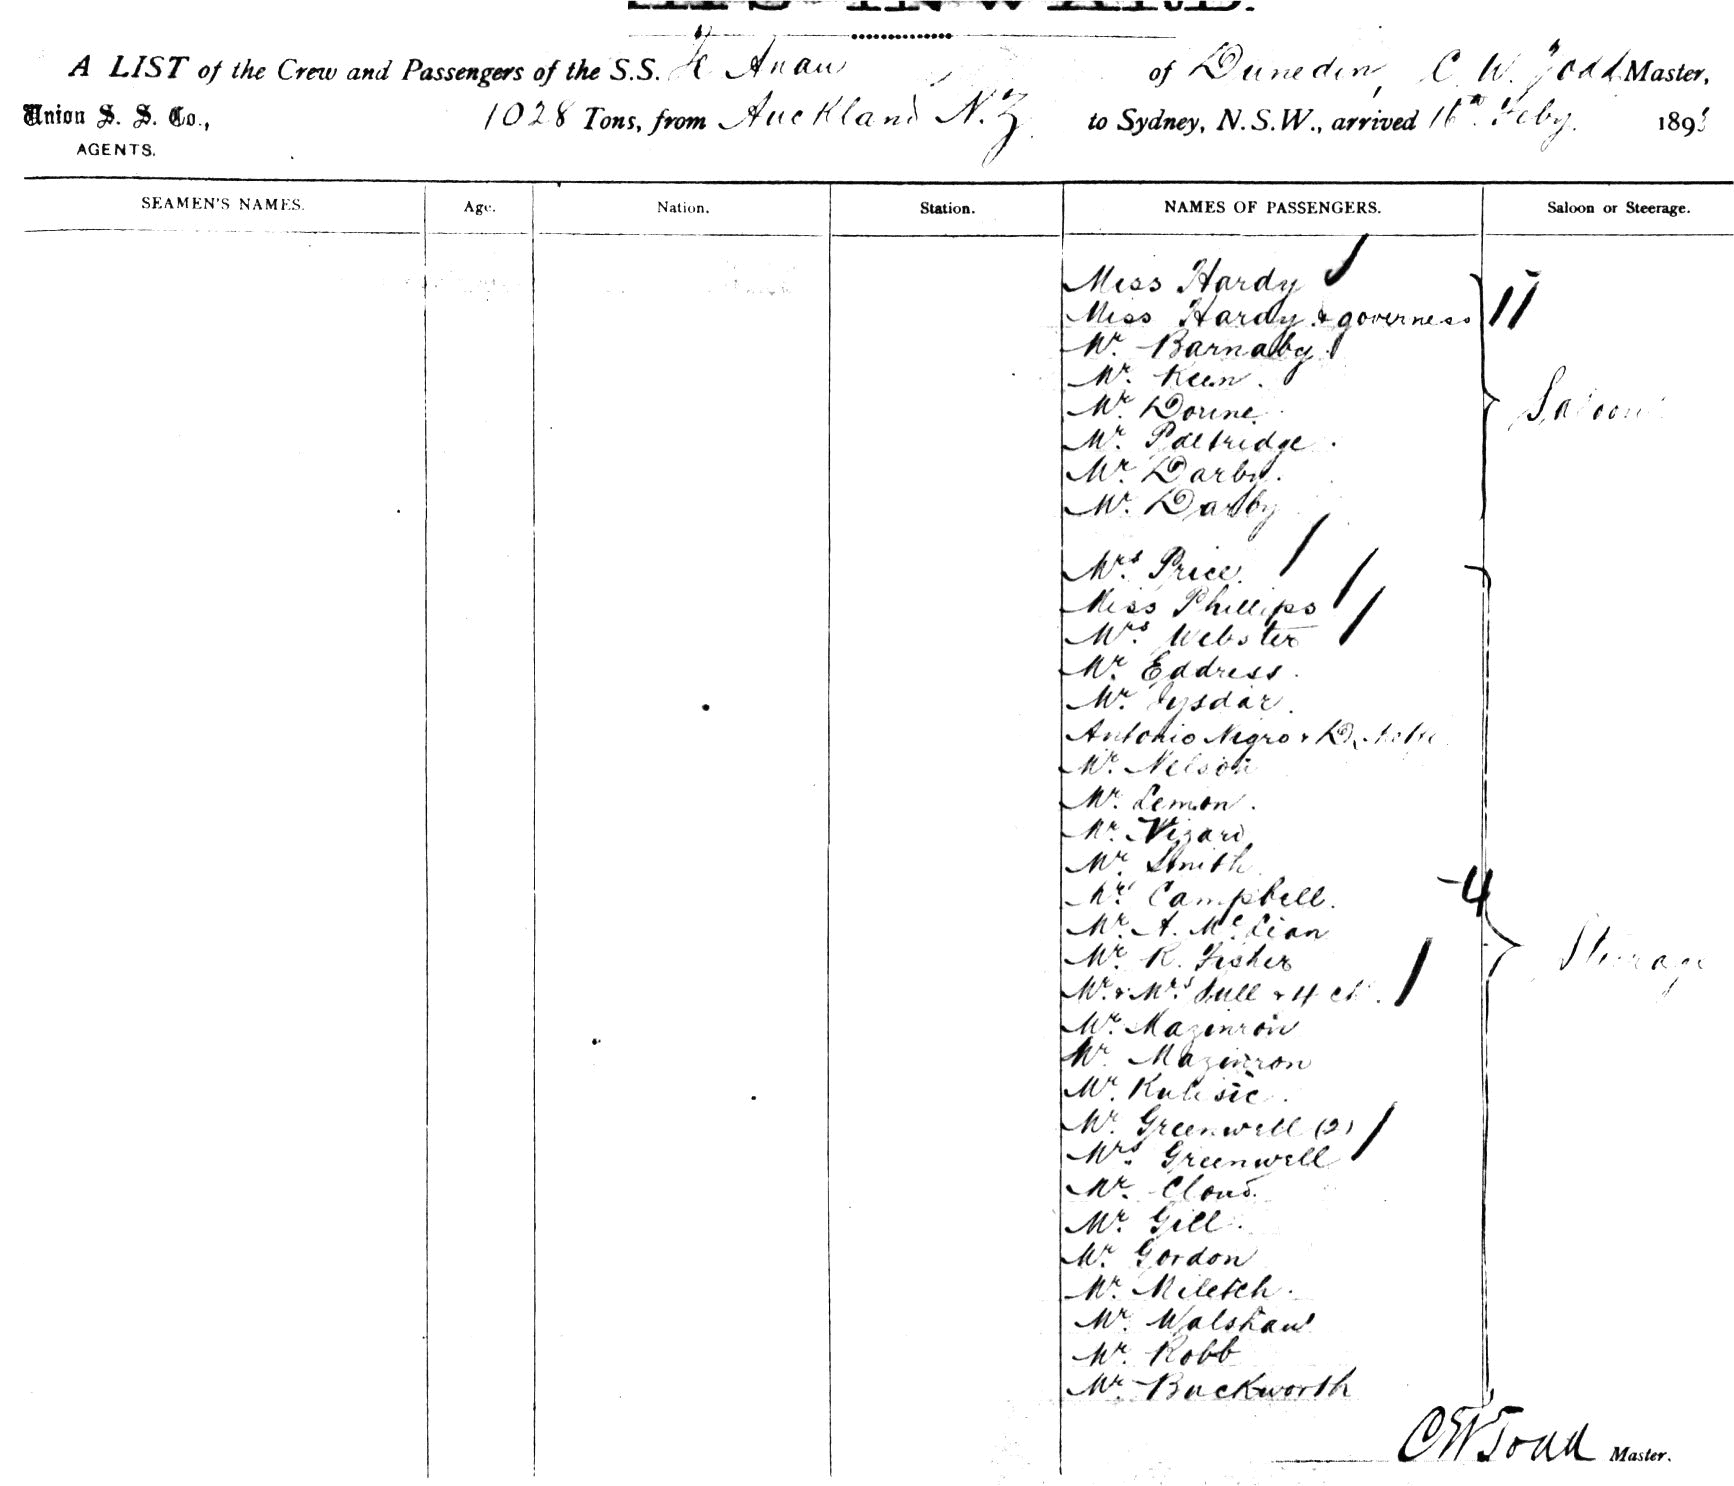 A LIST of the Crew and Passengers of the S.S. Te Anau of Dunedin, C. W. Todd Master,
Union S. S. Co., 1028 Tons, from Auckland N.Z. to Sydney, N.S.W., arrived 16th Feby. 189
AGENTS.
SEAMEN'S NAMES. Age. Nation. Station. NAMES OF PASSENGERS. Saloon or Steerage.
Miss Hardy
Miss Hardy & governess 11
Mr. Barnaby.
Mr. Keen.
Mr. Dorine. Saloon
Mr. Paltridge.
Mr. Darby.
Mr. Darby
Mrs. Price.
Miss Phillips
Mrs. Webster
Mr. Eddress.
Mr.
Antonio Negro &
Mr. Nelson
Mr. Lemon.
Mr. Vizard
Mr. Smith
Mr. Campbell. -4
Mr. A. McLean
Mr. R. Fisher Steerage
Mr. & Mrs. Sull & 4 ch.
Mr. Mazinron
Mr. Mazinron
Mr. Kulisic.
Mr. Greenwell (2)
Mrs. Greenwell
Mr. Cloud.
Mr. Gill.
Mr. Gordon
Mr. Miletch.
Mr. Walshaw
Mr. Robb
Mr. Buckworth
C W Todd Master.